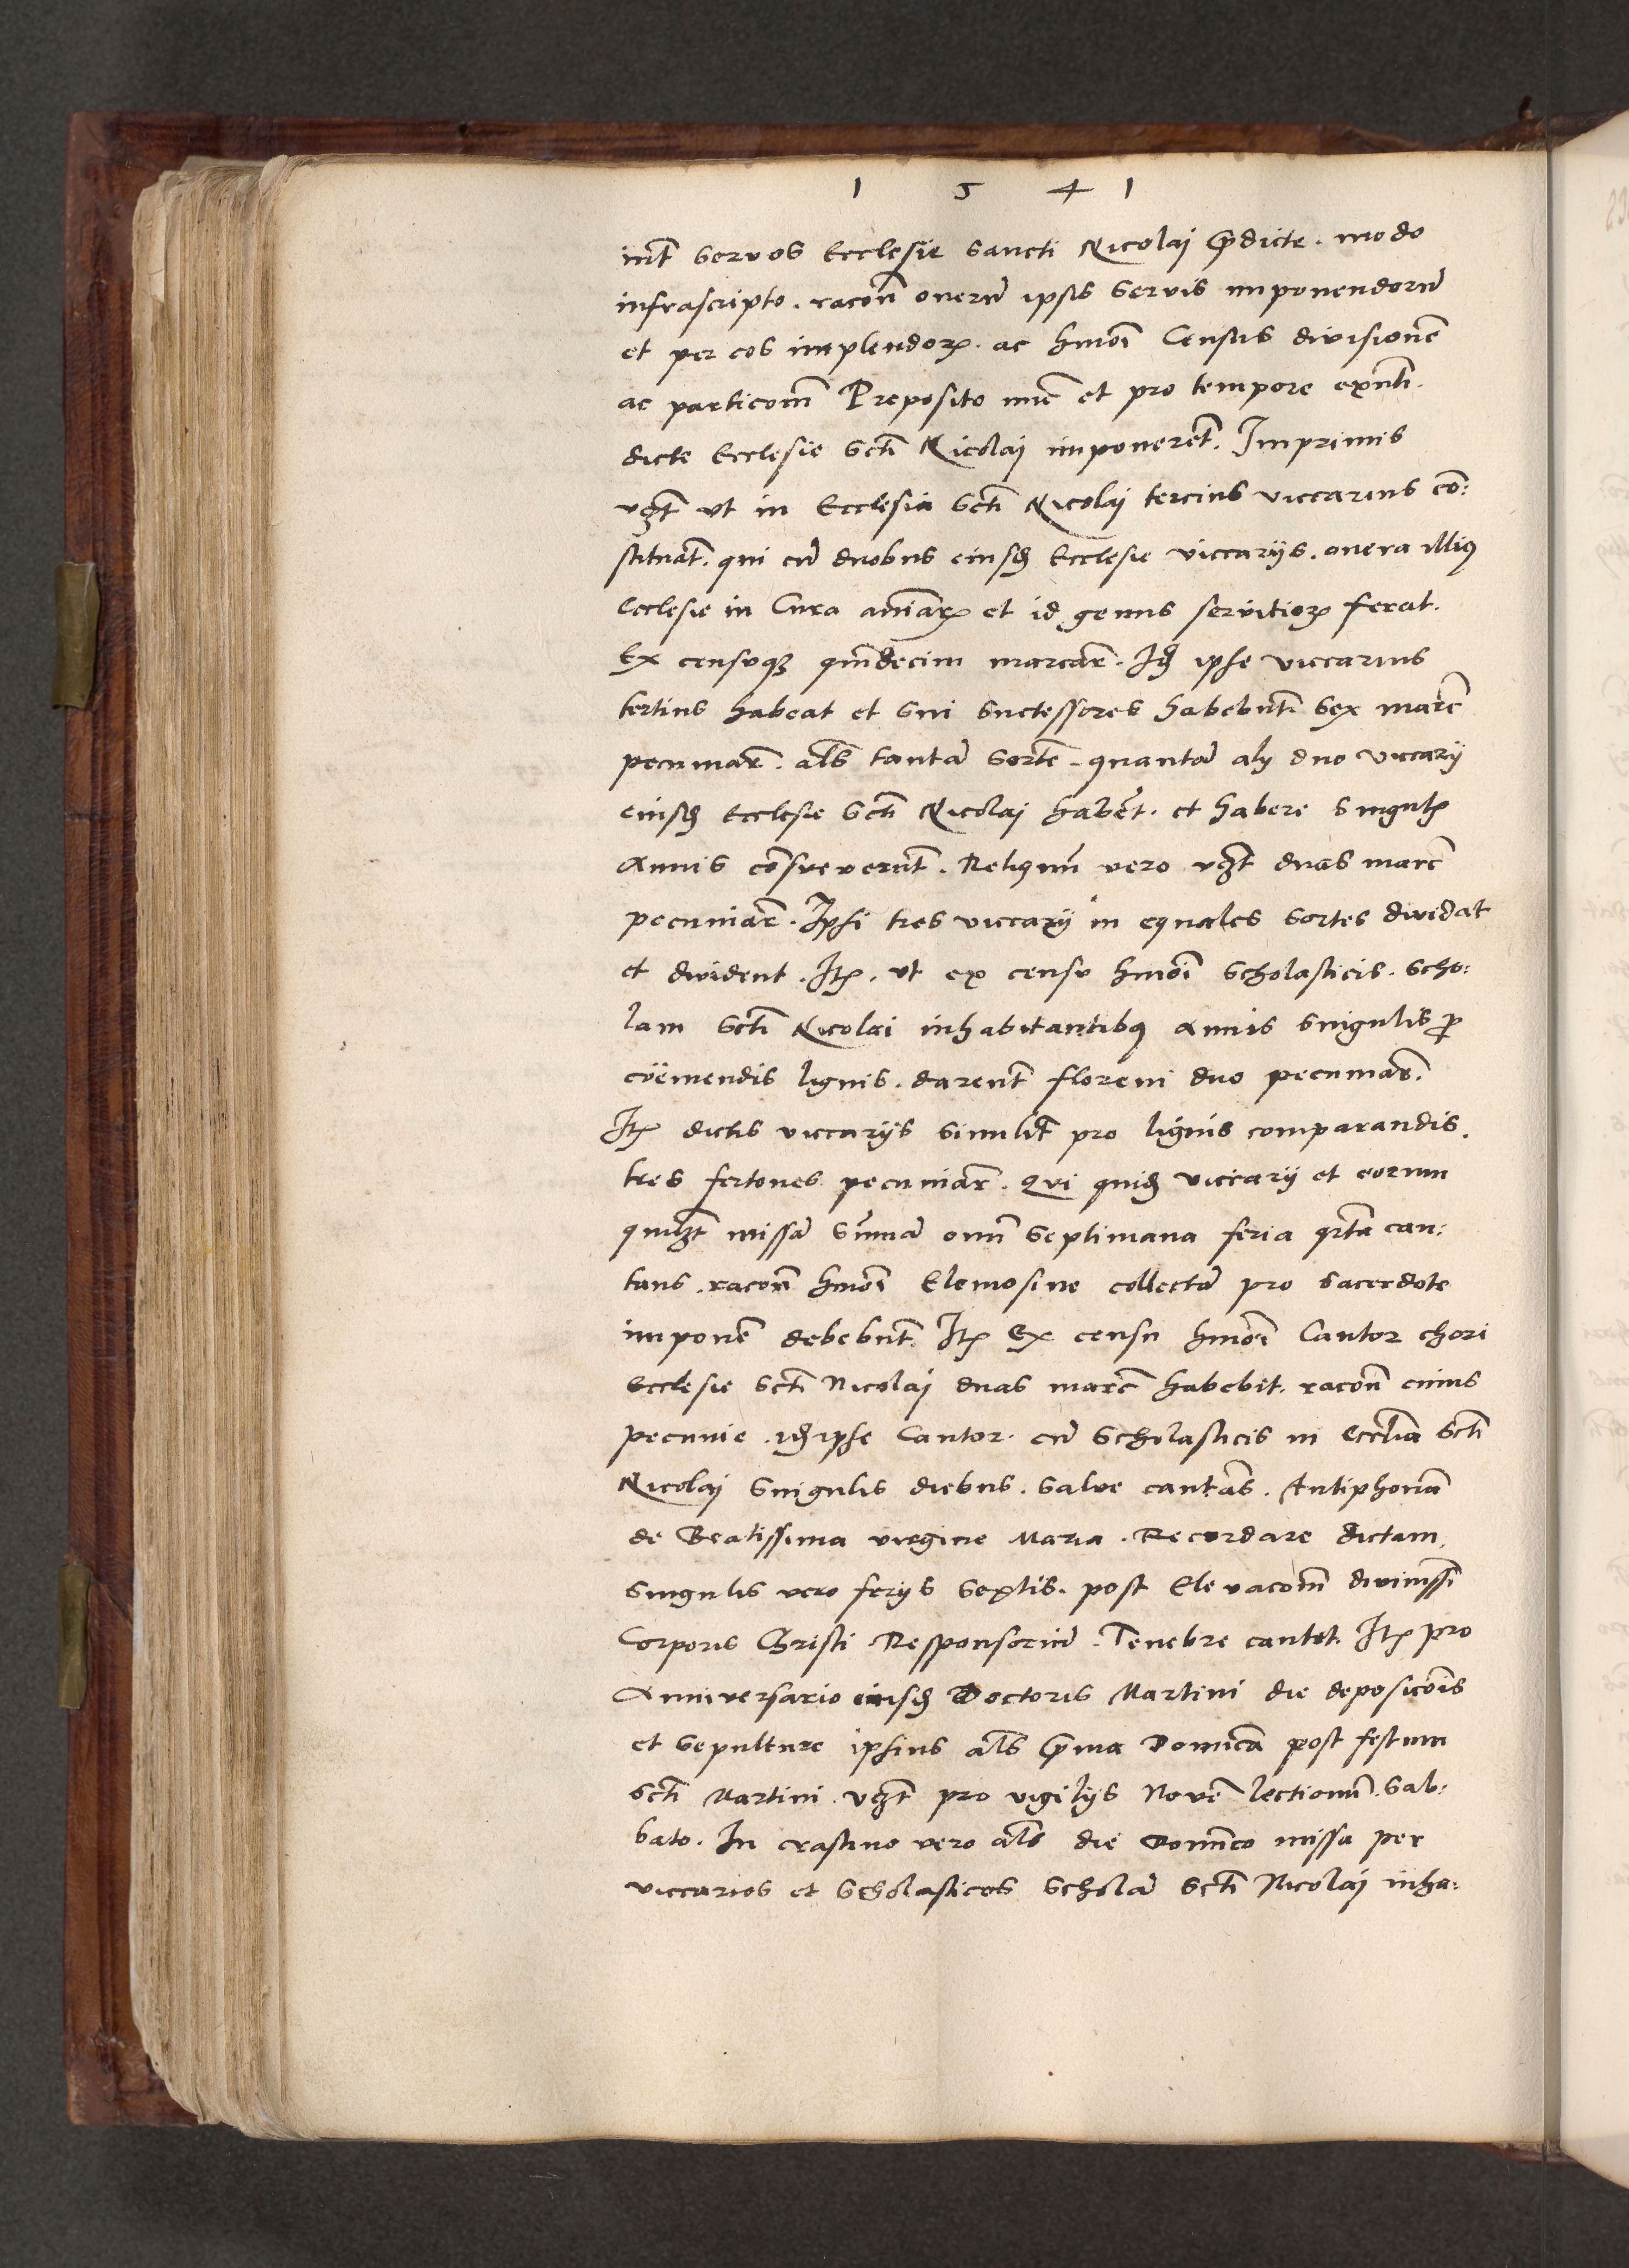 1 5 4 1
int̄ servos Ecclesie sancti Nicolaj p̄dicte. modo
infrascripto. racōn onerū ipsis servis imponendorū
et per eos implendoꝝ. ac hmōi Census divisionē
ac particōm̄ Preposito nūc et pro tempore exn̄ti.
dicte Ecclesie Scti Nicolaj imponerēt. Imprimis
vꝫt ut in Ecclesia Scti Nicolaj tercius viccarius cō:
stituāt. qui cū duobus eiusdē Ecclesie viccarijs. onera illiꝰ
Ecclesie in Cura aīarꝝ et id genus servitioꝝ ferat.
Ex censuqꝫ quīdecim marcar̄. Idē ipse viccarius
tertius habeat et sui suctessores habebūt Sex marc̄
pecuniar̄. al̄s tantā sortē. quantā alij duo viccarij
eiusdē Ecclesie Scti Nicolaj habēt. et habere singul̄
Annis cōsueverūt. Reliquū vero vꝫt duas marc̄
pecuniar̄. Ipsi tres viccarij in equales sortes dividāt
et divident. Itꝫ. ut ex censu hmōi Scholasticis. Scho:
lam Scti Nicolai inhabitantibꝰ Annis singulis ꝓ
coëmendis lignis. darent̄ floreni duo pecuniar̄.
Itꝫ dictis viccarijs similit̄ pro lignis comparandis.
tres fertones pecuniar̄. Qui quidē viccarij et eorum
quilꝫt missā sūmā omī Septimana feria qrta can:
tans. racōn hmōi Elemosine collectā pro sacerdote
imponē debebūt. Itꝫ Ex censu hmōi Cantor chori
Ecclesie Scti Nicolaj duas marc̄ habebit. racōn cuius
pecunie. idē ipse Cantor. cū Scholasticis in Eccl̄ia Scti
Nicolaj singulis diebus. Salve cantās. Antiphonā
de Beatissima virgine Maria. Recordare dictam.
singulis vero ferijs sextis. post Elevacōm̄ diviniss̄i
Corporis Christi Responsoriū. Tenebre cantet. Itꝫ pro
Anniversario eiusdē Doctoris Martini die deposicōis
et sepulture ipsius al̄s p̄ma Domīca post festum
Scti Martini. vꝫt pro vigilijs Novē lectionū. Sab:
bato. In crastino vero al̄s die Domīco missa per
viccarios et Scholasticos Scholā Scti Nicolaj inha: